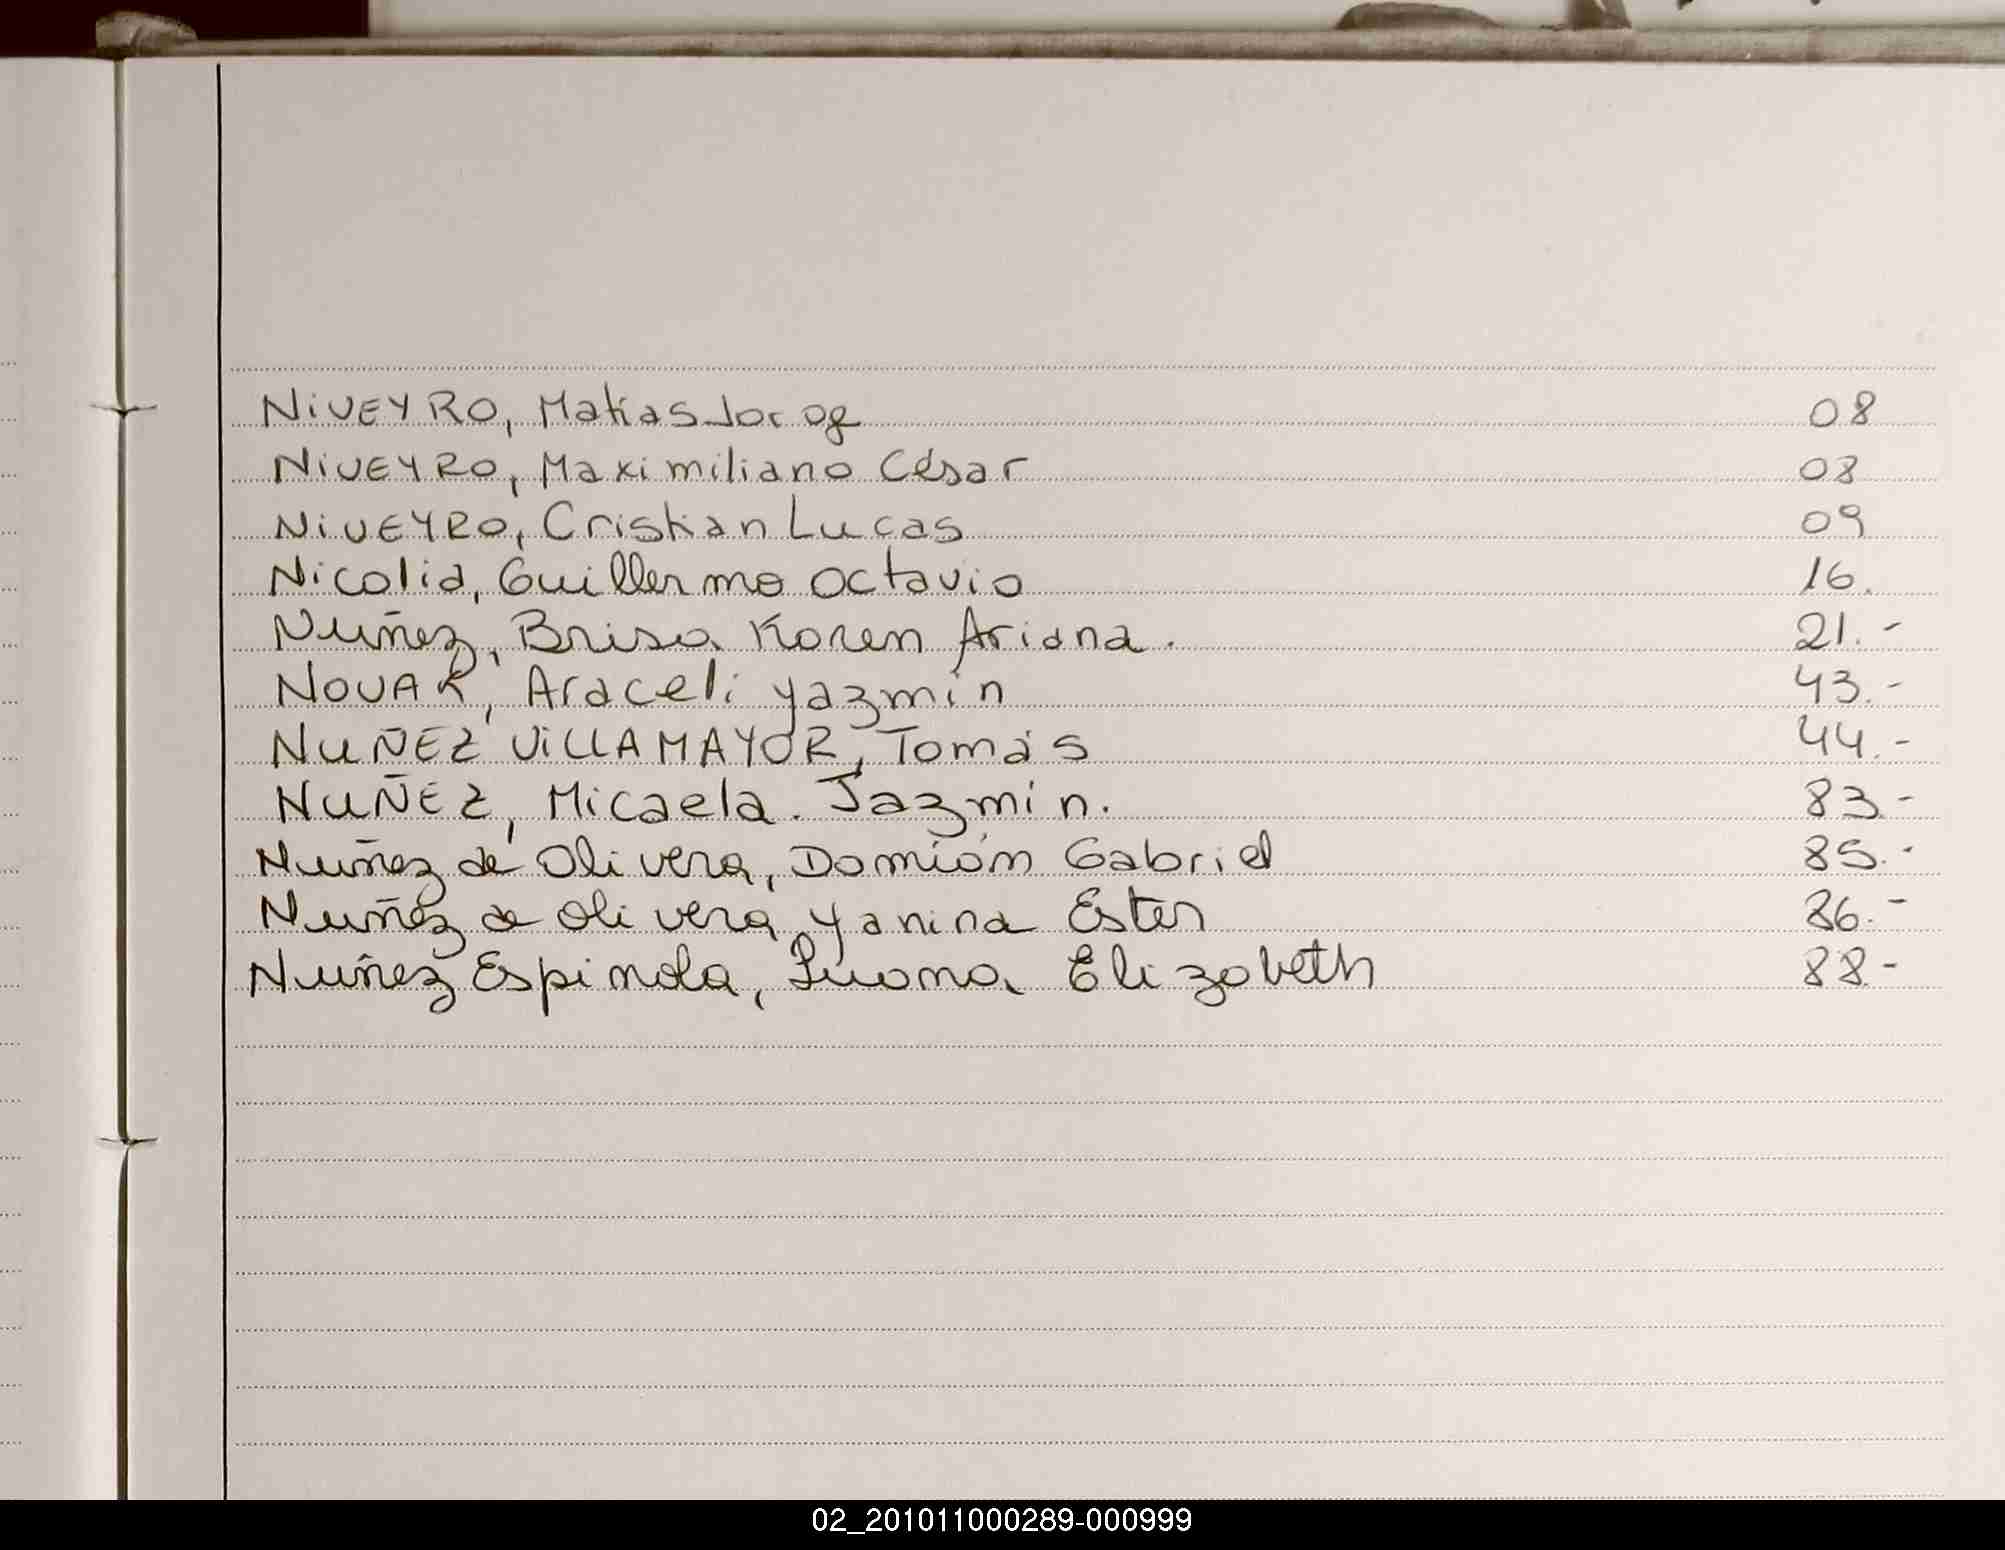 NiVEYRO, Matias Jorge 08
NiVEYRO, Maximiliano César 08
NiVEYRO, Cristian Lucas 09
Nicolia, Guillermo Octavio 16.
Nuñez, Brisa Karen Ariana. 21.-
NOVAR, Araceli Yazmín 43.-
NUÑEZ ViLLAMAYOR, Tomás 44.-
NUÑEZ, Micaela. Jazmín. 83.-
Nuñez de Olivera, Damián Gabriel 85.-
Nuñez de Olivera, Yanina Ester 86.-
Nuñez Espinola, Luana Elizabeth 88.-
02_201011000289-000999